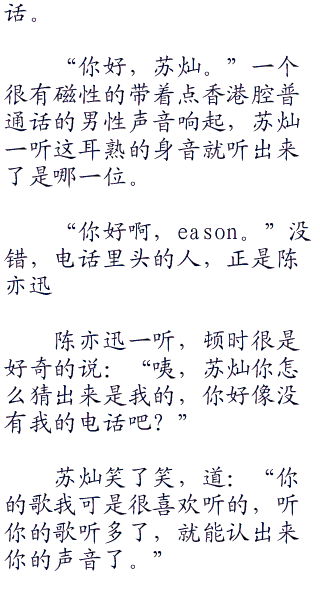 话。
“你好，苏灿。”一个
很有磁性的带着点香港腔普
通话的男性声音响起，苏灿
一听这耳熟的身音就听出来
了是哪一位。
“你好啊，eason。”没
错，电话里头的人，正是陈
亦迅
陈亦迅一听，顿时很是
好奇的说：“咦，苏灿你怎
么猜出来是我的，你好像没
有我的电话吧？”
苏灿笑了笑，道：“你
的歌我可是很喜欢听的，听
你的歌听多了，就能认出来
你的声音了。”